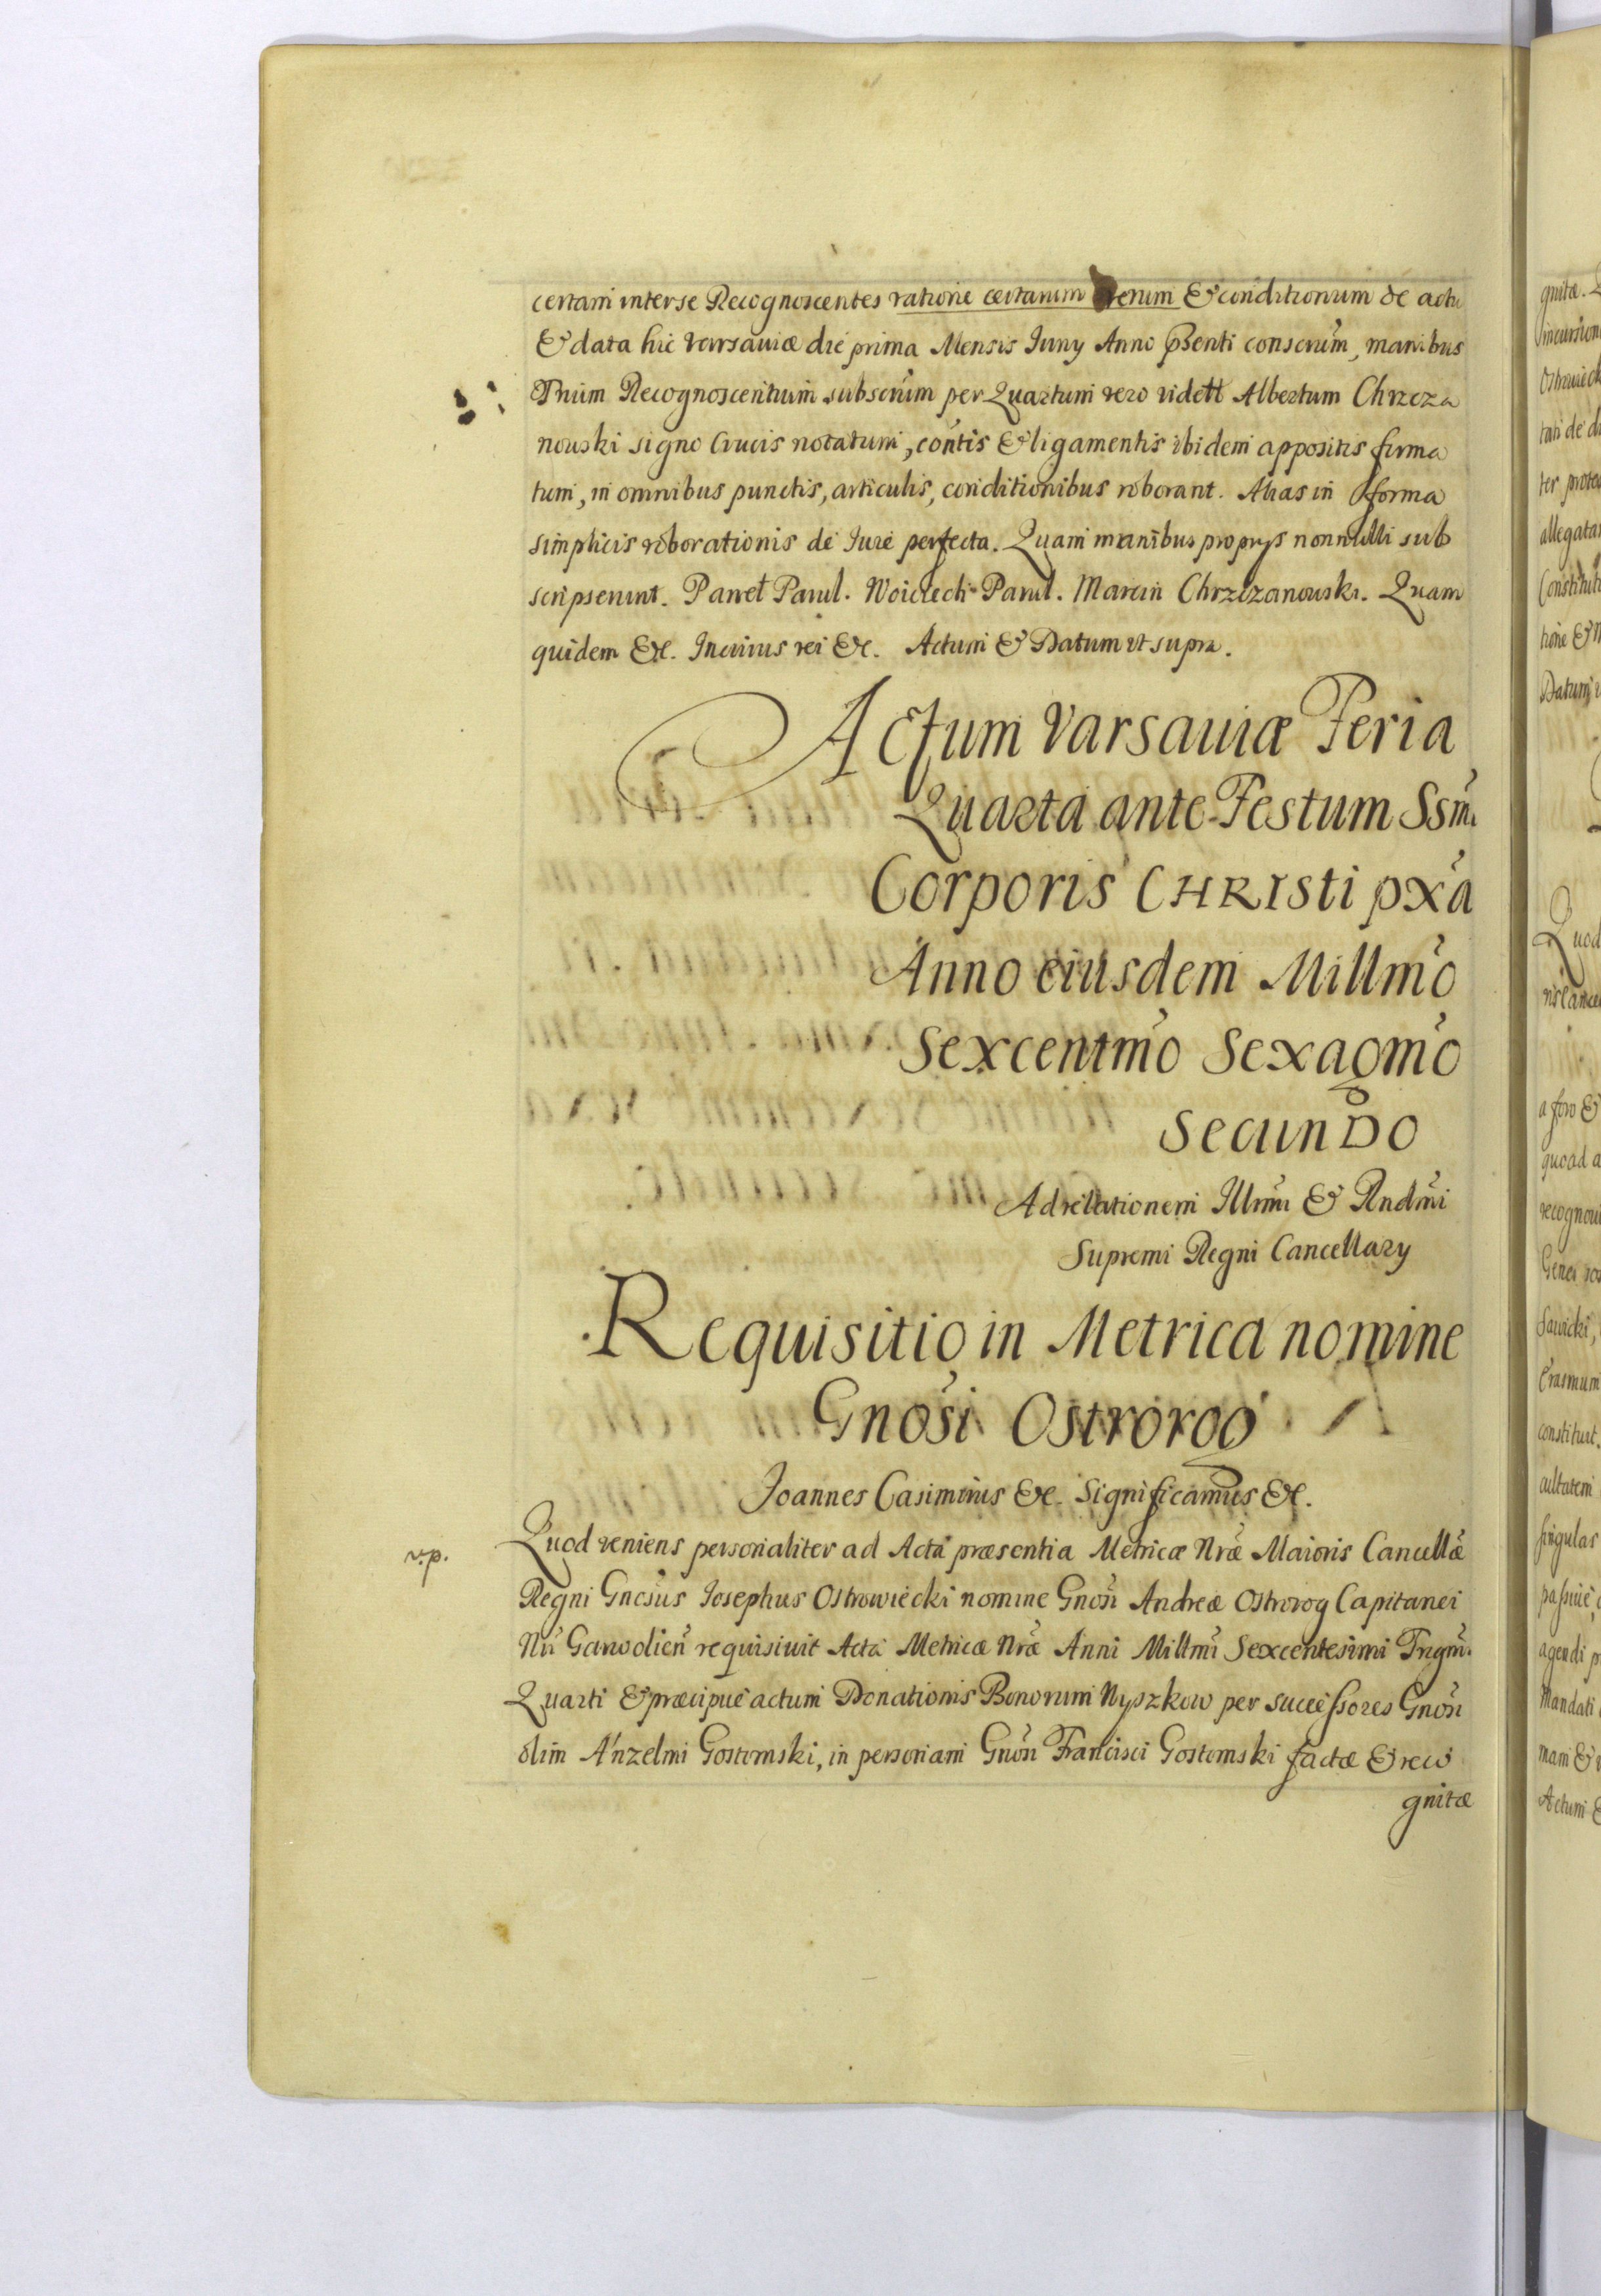 certam inter se Recognoscentes ratione certarum rerum & conditionum de actu
& data hic Varsaviæ die prima Mensis Iuny Anno pñsenti conscrim̃, manibus
Trium Recognoscentium subscrim̃ per Quartum vero vidett Albertum Chrzcza
nouski signo Crucis notatum, con͂tis & ligamentis ibidem appositis firma
tum, in omnibus punctis, articulis, conditionibus roborant. Alias in forma
simplicis roborationis de Iure perfecta. Quam manibus proprys nonnulli sub
scripserunt. Paweł Pawl. Woiciech Pawl. Marcin Chrzczonowski. Quam
quidem &c. In cuius rei &c. Actum & Datum vt supra.
Actum Varsauiæ Feria
Quarta ante Festum Ssm̃i
Corporis CHRIsti pxã
Anno eiusdem Millm̃o
Sexcentm̃o Sexagm̃o
SecunDo
Ad relationem Illmi & Rndm̃i
Supremi Regni Cancellary
Requisitio in Metrica nomine
Gnõsi Ostrorog
Joannes Casimirus &c. Significamus &c.
v.p.
Quod veniens personaliter ad Acta præsentia Metricæ Nræ Maioris Cancellæ
Regni Gnosus Iosephus Ostrowiecki nomine Gnosi Andreæ Ostrorog Capitanei
Nri Garwolien̄ requisiuit Acta Metricæ Nræ Anni Millmi Sexcentesimi Trigm̃i
Quarti & præcipue actum Donationis Bonorum Nyszkow per successores Gnosi
olim Anzelmi Gostomski, in personam Gnosi Francisci Gostomski factæ & reco
gnitæ
gnitæ.
Quod
a foro &
quoad a
Sawicki,
Erasmum
constituit.
singulas
agendi p
Mandati
Actum &